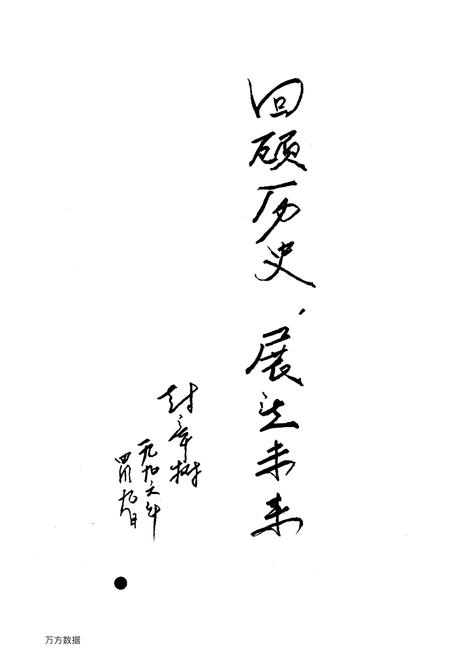 回顾历史、展望未来
封章树
一九九六年
四月九日
万方数据